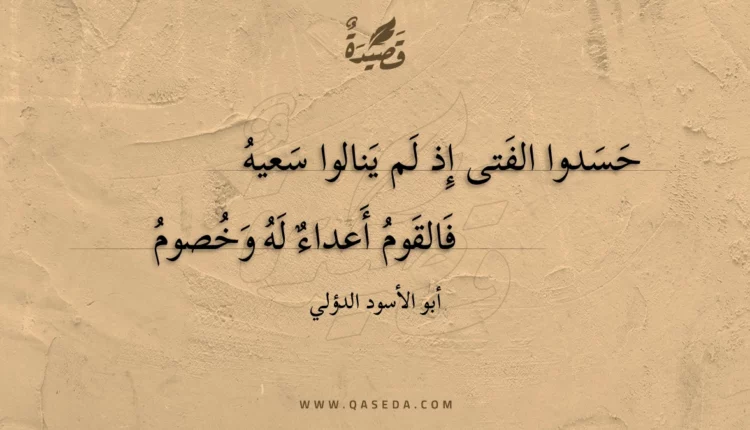 قَصِيدَةٌ
حَسَدوا الفَتى إِذ لَم يَنالوا سَعيهُ
فَالقَومُ أَعداءٌ لَهُ وَخُصومُ
أبو الأسود الدؤلي
WWW.QASEDA.COM